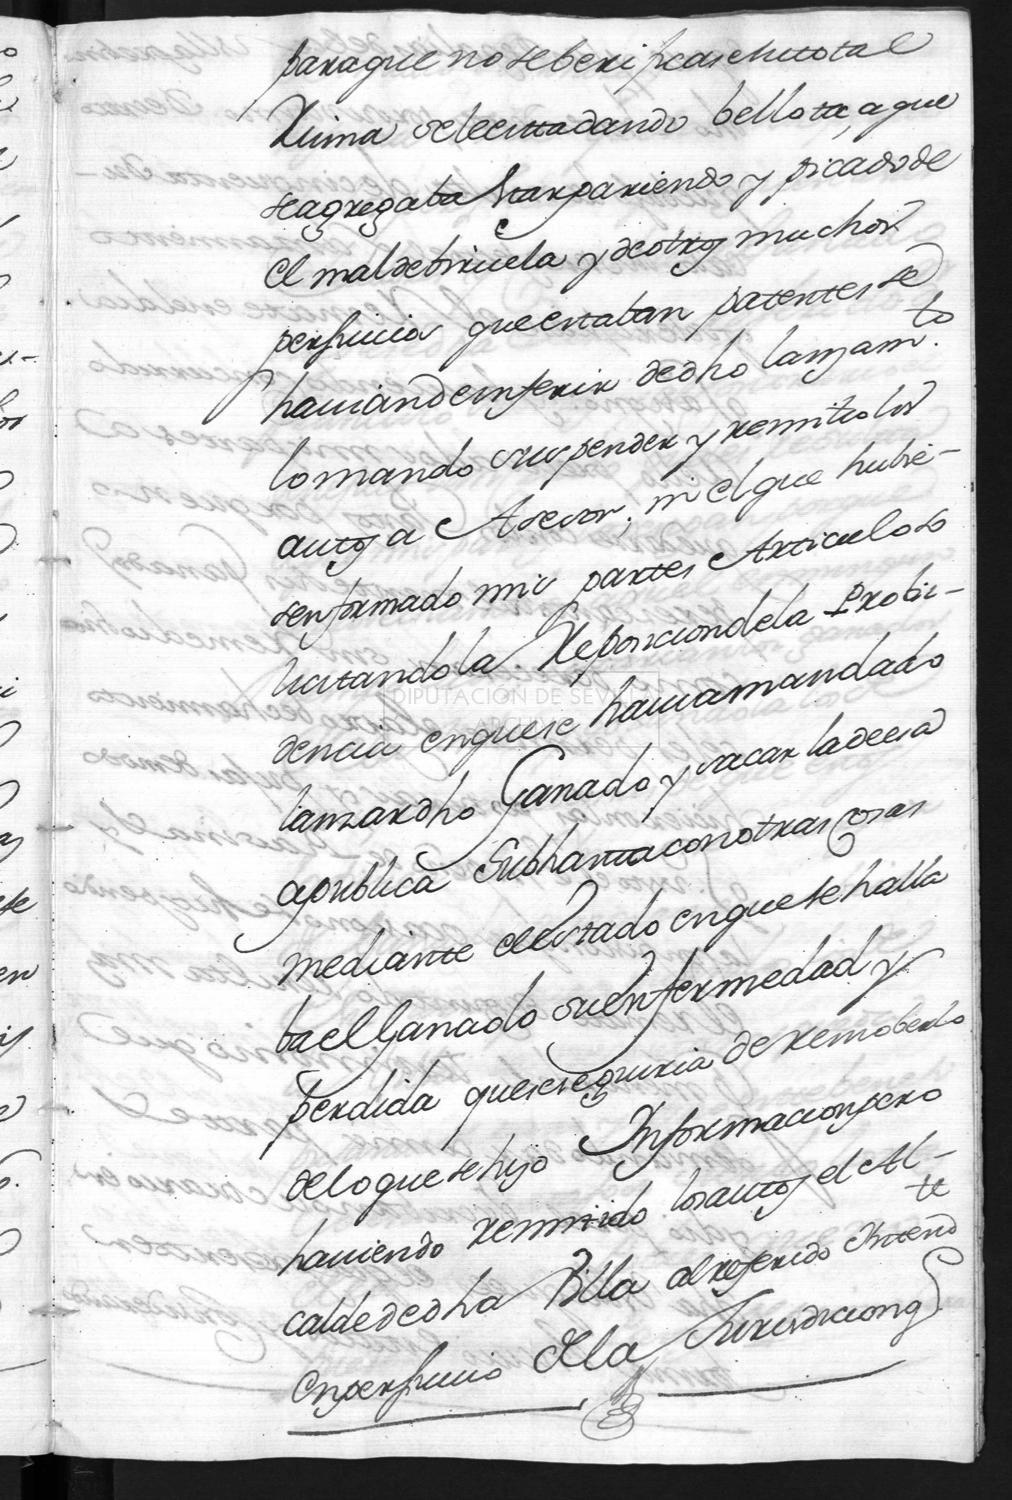 para que no se berificase su total
Ruina se le esta dando bellota, a que
se agregaba estar pariendo y picado de
el mal de biruela y de otros muchos
perjuicios que estaban patentes se
havian de inferir de dho lanzam.to
lo mando suspender y remitio los
autos a Asesor, en el que hubie-
sen formado mis partes Articulo so
licitando la Reposicion de la Probi-
dencia en que se havia mandado
lanzar dho Ganado y sacar la deesa
a publica Subhasta con otras cosas
mediante el estado en que se halla
ba el Ganado su enfermedad y
perdida que se seguiria de remoberlo
de lo que se hizo Informacion pero
haviendo remitido los autos el Al-
calde de dha Villa al referido Intend.te
en perjuicio de la Jurisdicion q.e
DIPUTACIÓN DE SEVILLA
ARCHIVO